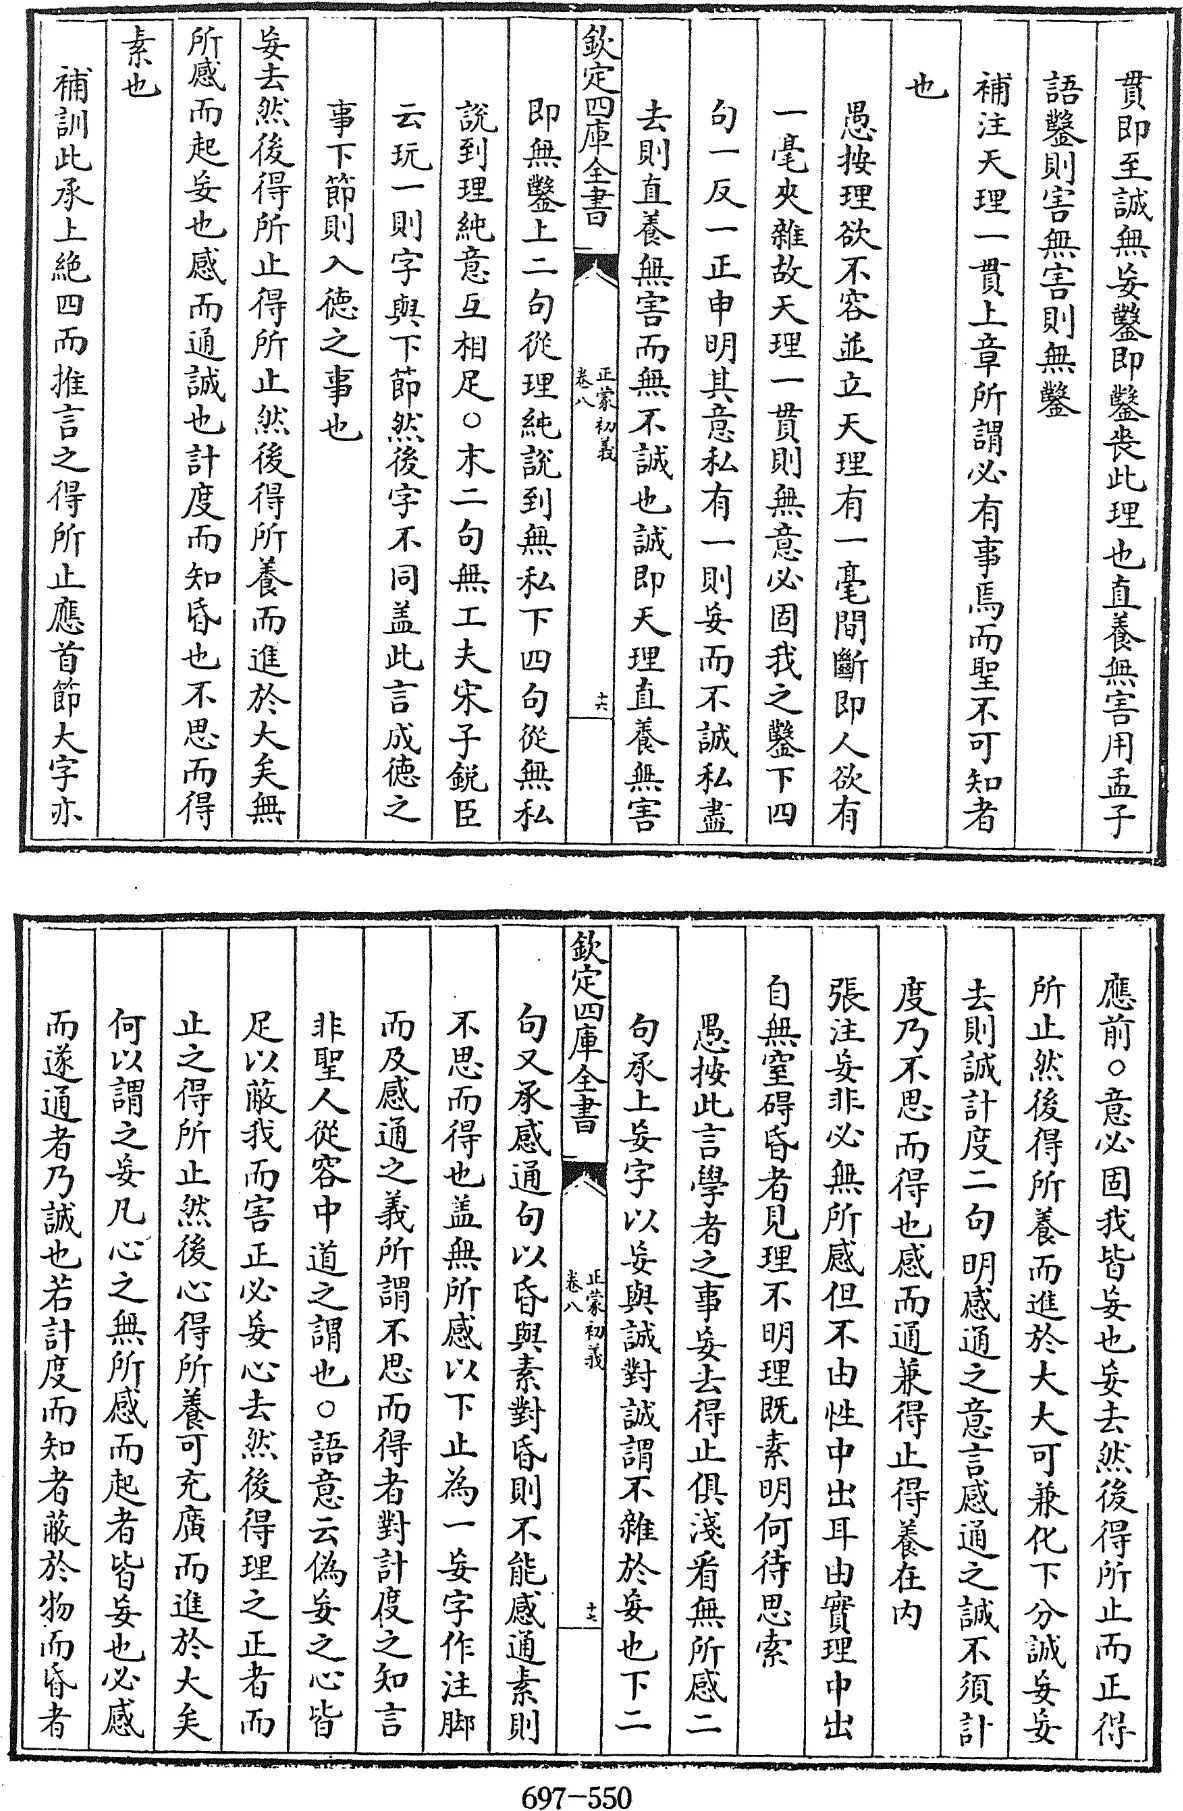 貫即至誠無妄鑿即鑿喪此理也直養無害用孟子
語鑿則害無害則無鑿
補注天理一貫上章所謂必有事焉而聖不可知者
也
愚按理欲不容並立天理有一毫間斷即人欲有
一毫夾雜故天理一貫則無意必固我之鑿下四
句一反一正申明其意私有一則妄而不誠私盡
去則直養無害而無不誠也誠即天理直養無害
欽定四庫全書
正蒙初義
卷八
十六
即無鑿上二句從理純說到無私下四句從無私
說到理純意互相足○末二句無工夫宋子銳臣
云玩一則字與下節然後字不同盖此言成德之
事下節則入德之事也
妄去然後得所止得所止然後得所養而進於大矣無
所感而起妄也感而通誠也計度而知昏也不思而得
素也
補訓此承上絶四而推言之得所止應首節大字亦
應前○意必固我皆妄也妄去然後得所止而正得
所止然後得所養而進於大大可兼化下分誠妄妄
去則誠計度二句明感通之意言感通之誠不須計
度乃不思而得也感而通兼得止得養在内
張注妄非必無所感但不由性中出耳由實理中出
自無窒碍昏者見理不明理既素明何待思索
愚按此言學者之事妄去得止俱淺看無所感二
句承上妄字以妄與誠對誠謂不雜於妄也下二
欽定四庫全書
正蒙初義
卷八
十七
句又承感通句以昏與素對昏則不能感通素則
不思而得也盖無所感以下止為一妄字作注脚
而及感通之義所謂不思而得者對計度之知言
非聖人從容中道之謂也○語意云偽妄之心皆
足以蔽我而害正必妄心去然後得理之正者而
止之得所止然後心得所養可充廣而進於大矣
何以謂之妄凡心之無所感而起者皆妄也必感
而遂通者乃誠也若計度而知者蔽於物而昏者
697-550